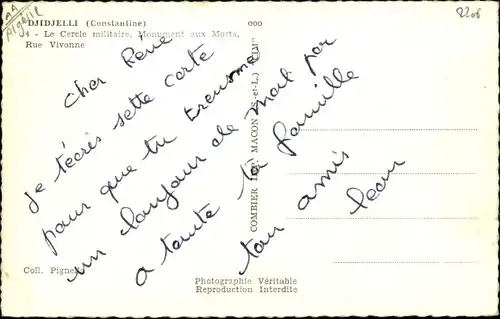 AA
Algérie
DJIDJELLI (Constantine)
4 - Le Cercle militaire, Monument aux Morts,
Rue Vivonne
ooo
2206
Cher René
je t'écris sette carte
pour que tu trensme
un bonjour de moi par
a toute ta famille
ton amis
COMBIER IMP. MACON (S.-et-L.) "CIM"
Coll. Pigne
Photographie Véritable
Reproduction Interdite